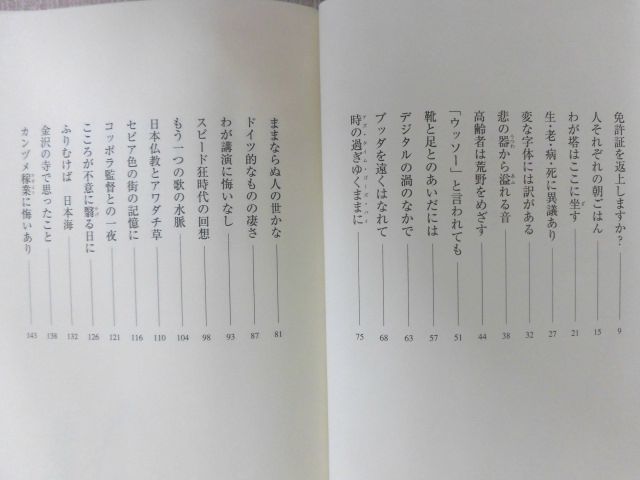 免許証を返上しますか? 9
人それぞれの朝ごはん 15
わが塔はここに坐す 21
生・老・病・死に異議あり 27
変な字体には訳がある 32
悲の器から溢れる音 38
高齢者は荒野をめざす 44
「ウッソー」と言われても 51
靴と足とのあいだには 57
デジタルの渦のなかで 63
ブッダを遠くはなれて 68
時の過ぎゆくままに 75
ままならぬ人の世かな 81
ドイツ的なものの凄さ 87
わが講演に悔いなし 93
スピード狂時代の回想 98
もう一つの歌の水脈 104
日本仏教とアワダチ草 110
セピア色の街の記憶に 116
コッポラ監督との一夜 121
こころが不意に翳る日に 126
ふりむけば 日本海 132
金沢の寺で思ったこと 138
カンヅメ稼業に悔いあり 143